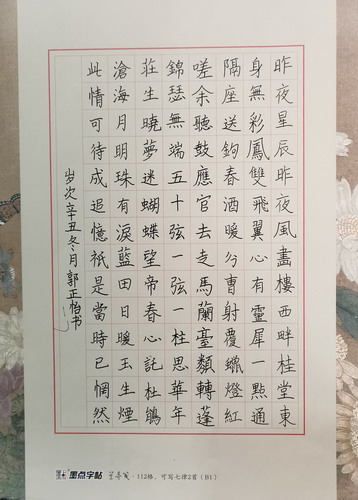 昨夜星辰昨夜風畫樓西畔桂堂東
身無彩鳳雙飛翼心有靈犀一點通
隔座送鉤春酒暖分曹射覆蠟燈紅
嗟余聽鼓應官去走馬蘭臺類轉蓬
錦瑟無端五十弦一弦一柱思華年
莊生曉夢迷蝴蝶望帝春心託杜鵑
滄海月明珠有淚藍田日暖玉生煙
此情可待成追憶祇是當時已惘然
岁次辛丑冬月郭正怡书
墨点字帖 · 112格，可写七律2首（B1）